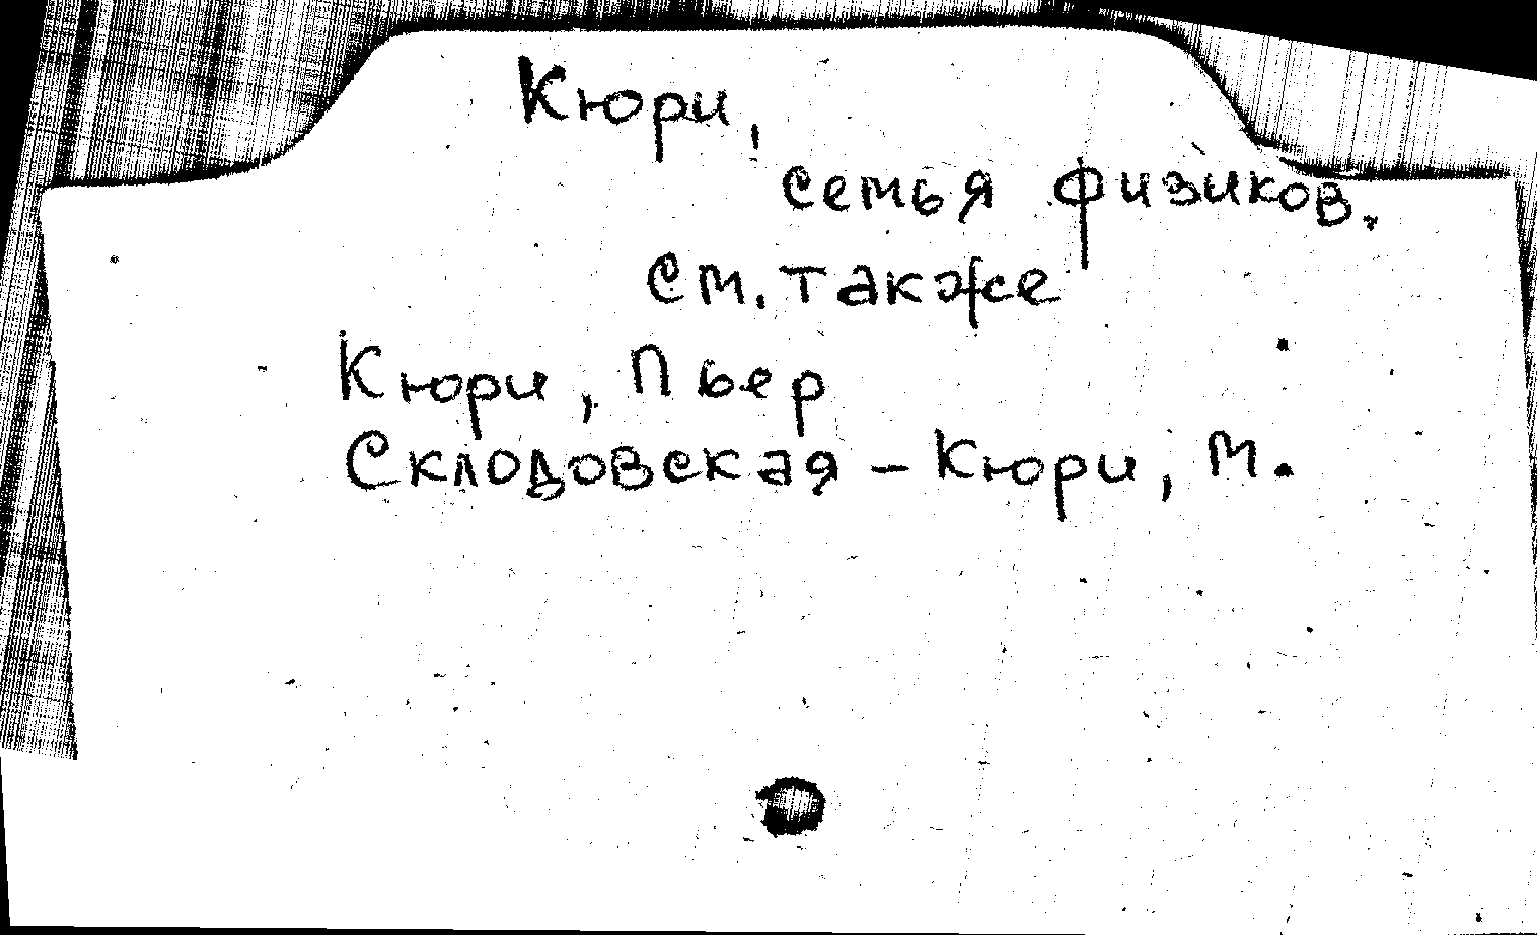 Кюри,
семья физиков.
см. также
Кюри, Пьер
Склодовская - Кюри, М.